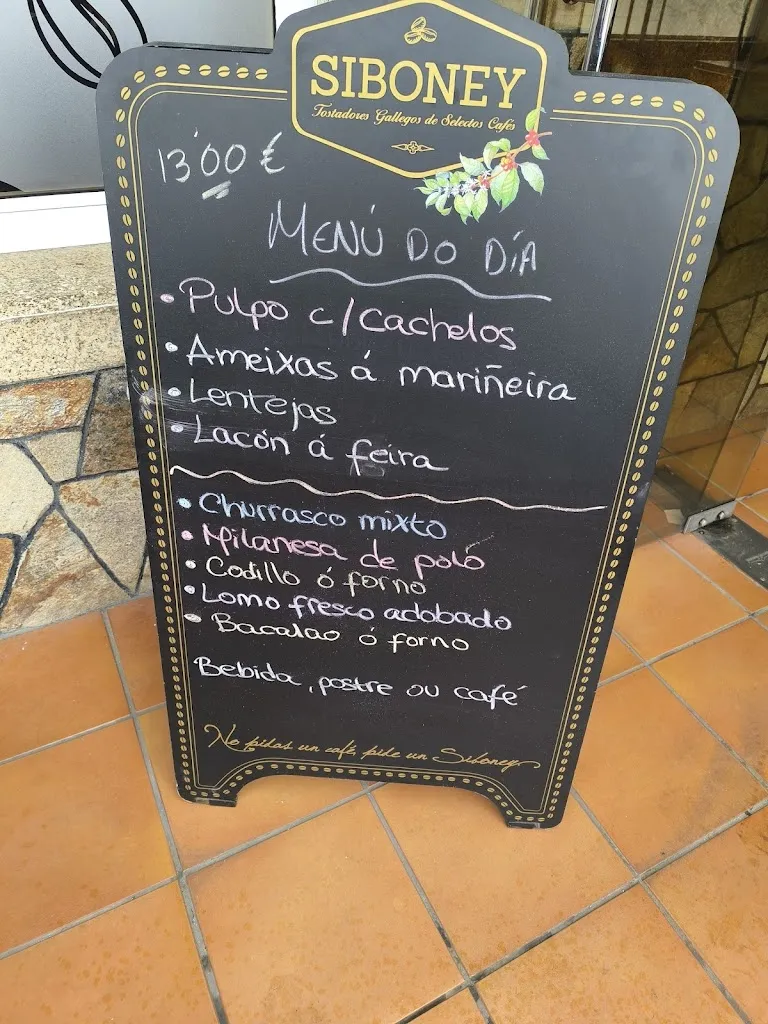 SIBONEY
Tostadores Gallegos de Selectos Cafés
13'00 €
MENÚ DO DÍA
• Pulpo c/cachelos
• Ameixas á mariñeira
• Lentejas
• Lacón á feira
• Churrasco mixto
• Milanesa de polo
• Codillo ó forno
• Lomo fresco adobado
• Bacalao ó forno
Bebida, postre ou café
No pidas un café, pide un Siboney